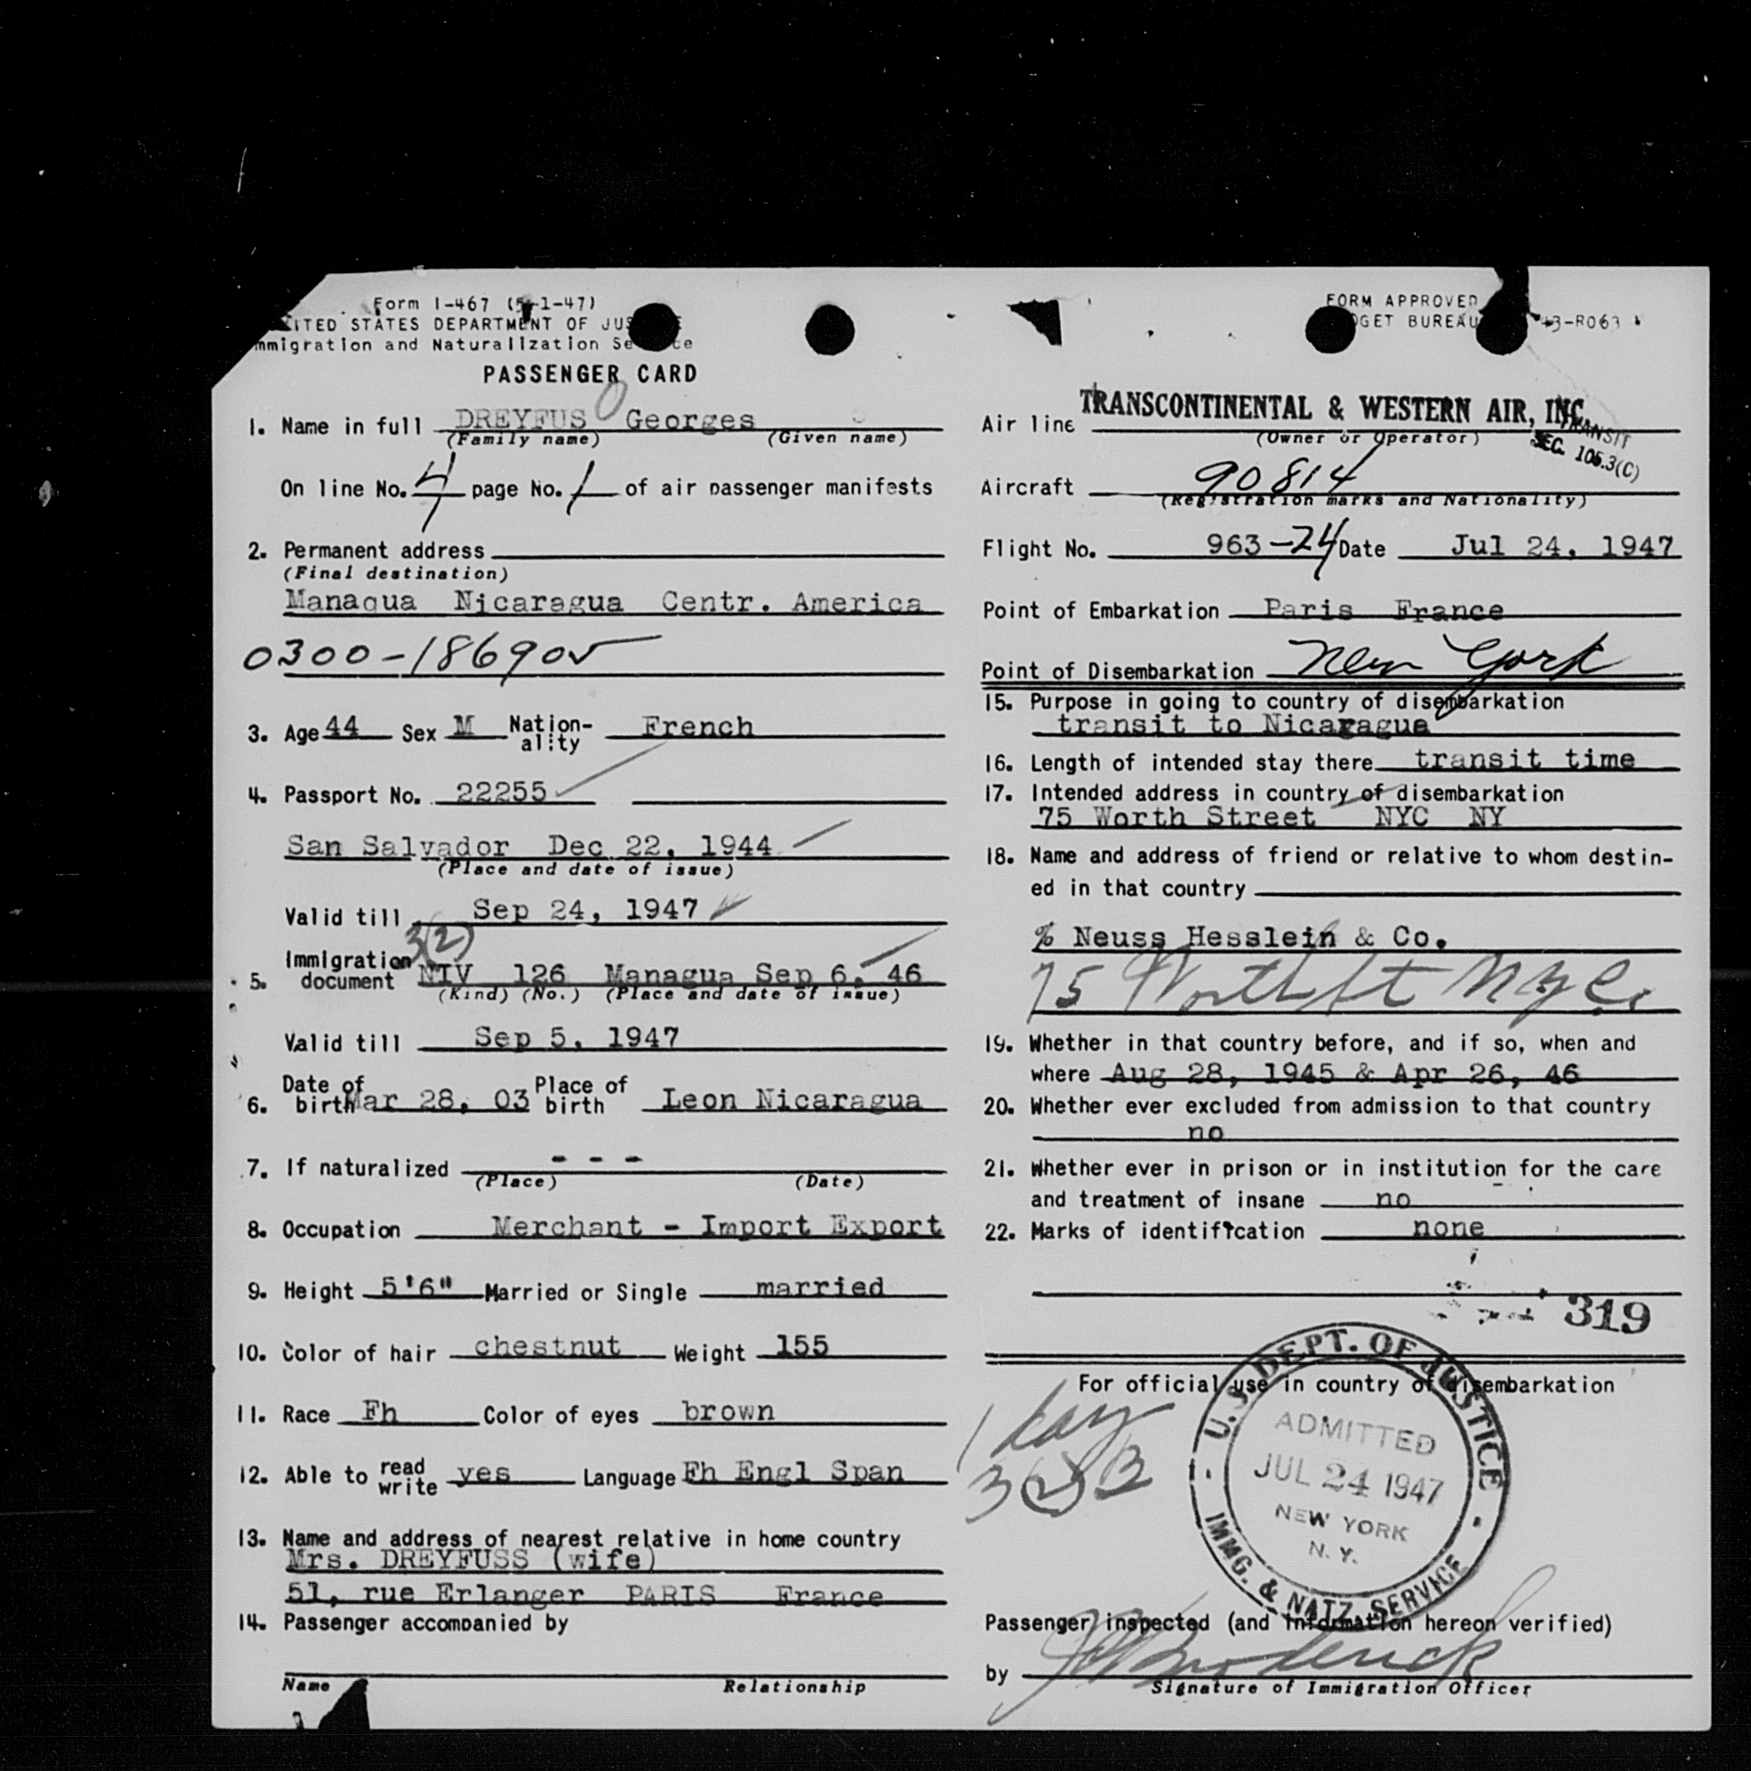 Form I-467 (5-1-47)
UNITED STATES DEPARTMENT OF JUSTICE
Immigration and Naturalization Service
PASSENGER CARD
1. Name in full DREYFUS Georges
(Family name) (Given name)
On line No. 4 page No. 1 of air passenger manifests
2. Permanent address
(Final destination)
Managua Nicaragua Centr. America
0300-186905
3. Age 44 Sex M Nation-ality French
4. Passport No. 22255
San Salvador Dec 22, 1944
(Place and date of issue)
Valid till Sep 24, 1947
3(2)
5. Immigration document NIV 126 Managua Sep 6, 46
(Kind) (No.) (Place and date of issue)
Valid till Sep 5, 1947
6. Date of birth Mar 28, 03 Place of birth Leon Nicaragua
7. If naturalized - - -
(Place) (Date)
8. Occupation Merchant - Import Export
9. Height 5'6" Married or Single married
10. Color of hair chestnut Weight 155
11. Race Fh Color of eyes brown
12. Able to read write yes Language Fh Engl Span
13. Name and address of nearest relative in home country
Mrs. DREYFUSS (wife)
51, rue Erlanger PARIS France
14. Passenger accompanied by
Name Relationship
FORM APPROVED
BUDGET BUREAU 43-R063
Air line TRANSCONTINENTAL & WESTERN AIR, INC.
(Owner or Operator)
TRANSIT
SEC. 105.3(C)
Aircraft 90814
(Registration marks and Nationality)
Flight No. 963-24 Date Jul 24, 1947
Point of Embarkation Paris France
Point of Disembarkation New York
15. Purpose in going to country of disembarkation
transit to Nicaragua
16. Length of intended stay there transit time
17. Intended address in country of disembarkation
75 Worth Street NYC NY
18. Name and address of friend or relative to whom destin-
ed in that country
% Neuss Hesslein & Co.
75 Worth St N.Y.C.
19. Whether in that country before, and if so, when and
where Aug 28, 1945 & Apr 26, 46
20. Whether ever excluded from admission to that country
no
21. Whether ever in prison or in institution for the care
and treatment of insane no
22. Marks of identification none
319
For official use in country of disembarkation
1 day
3(2)
U.S. DEPT. OF JUSTICE
ADMITTED
JUL 24 1947
NEW YORK
N.Y.
IMMG. & NATZ. SERVICE
Passenger inspected (and information hereon verified)
by Broderick
Signature of Immigration Officer